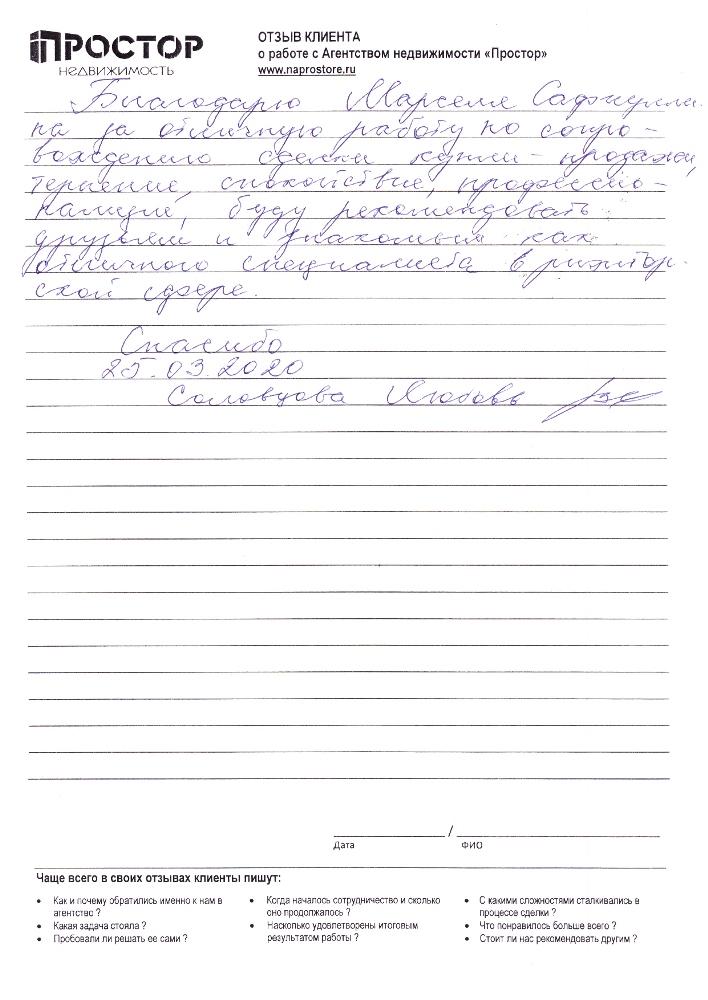 ПРОСТОР
НЕДВИЖИМОСТЬ
ОТЗЫВ КЛИЕНТА
о работе с Агентством недвижимости «Простор»
www.naprostore.ru
Благодарю Марселя Сафиулли
на за отличную работу по сопро-
вождению сделки купли-продажи,
терпение, спокойствие, профессио-
нализм, буду рекомендовать
друзьям и знакомым как
отличного специалиста в риэлтор-
ской сфере.
Спасибо
25.03.2020
Соловцова Любовь
/
Дата ФИО
Чаще всего в своих отзывах клиенты пишут:
• Как и почему обратились именно к нам в
агентство ?
• Какая задача стояла ?
• Пробовали ли решать ее сами ?
• Когда началось сотрудничество и сколько
оно продолжалось ?
• Насколько удовлетворены итоговым
результатом работы ?
• С какими сложностями сталкивались в
процессе сделки ?
• Что понравилось больше всего ?
• Стоит ли нас рекомендовать другим ?